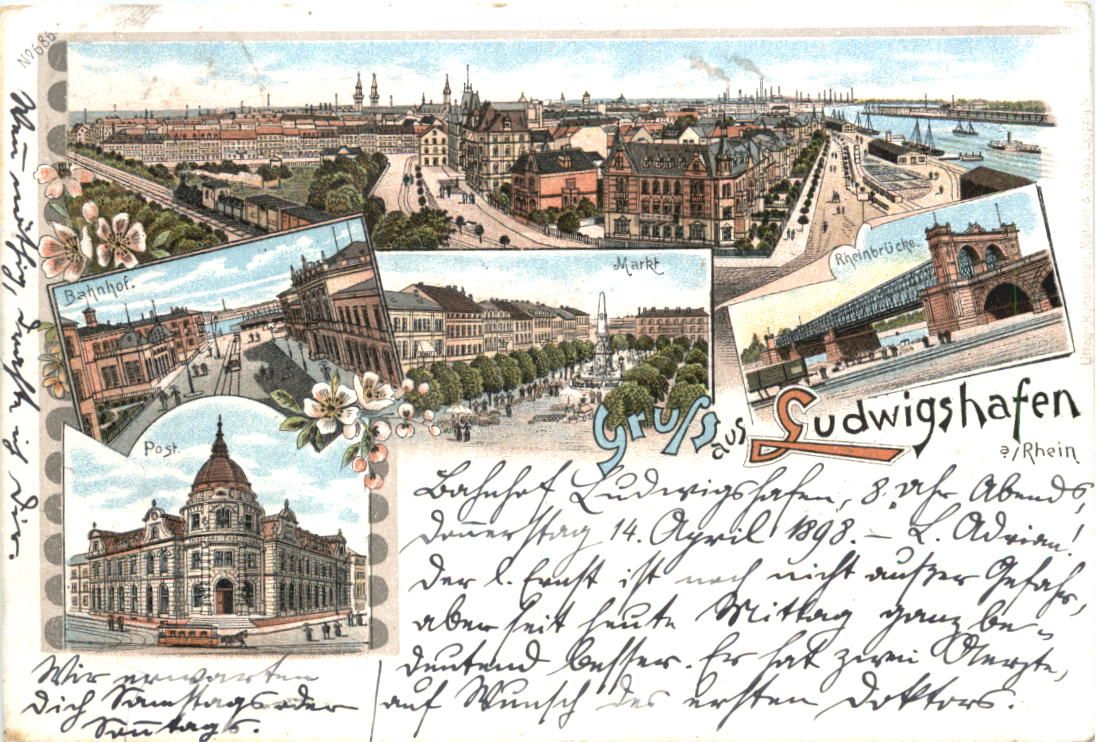 No 686
Bahnhof.
Markt
Rheinbrücke.
Post.
Gruss
aus
Ludwigshafen
a/Rhein
Bahnhof Ludwigshafen, 8 Uhr Abends,
Donnerstag 14. April 1898. – L. Adrian!
Der l. Ernst ist noch nicht außer Gefahr,
aber seit heute Mittag ganz be-
deutend besser. Er hat zwei Aerzte,
auf Wunsch des ersten Doktors.
Wir erwarten
Dich Samstags oder
Sonntags.